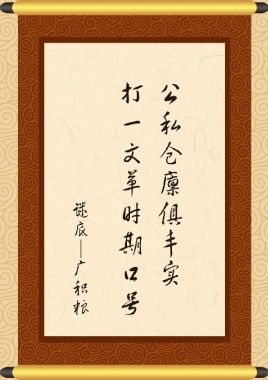 公私仓廪俱丰实
打一文革时期口号
谜底—广积粮